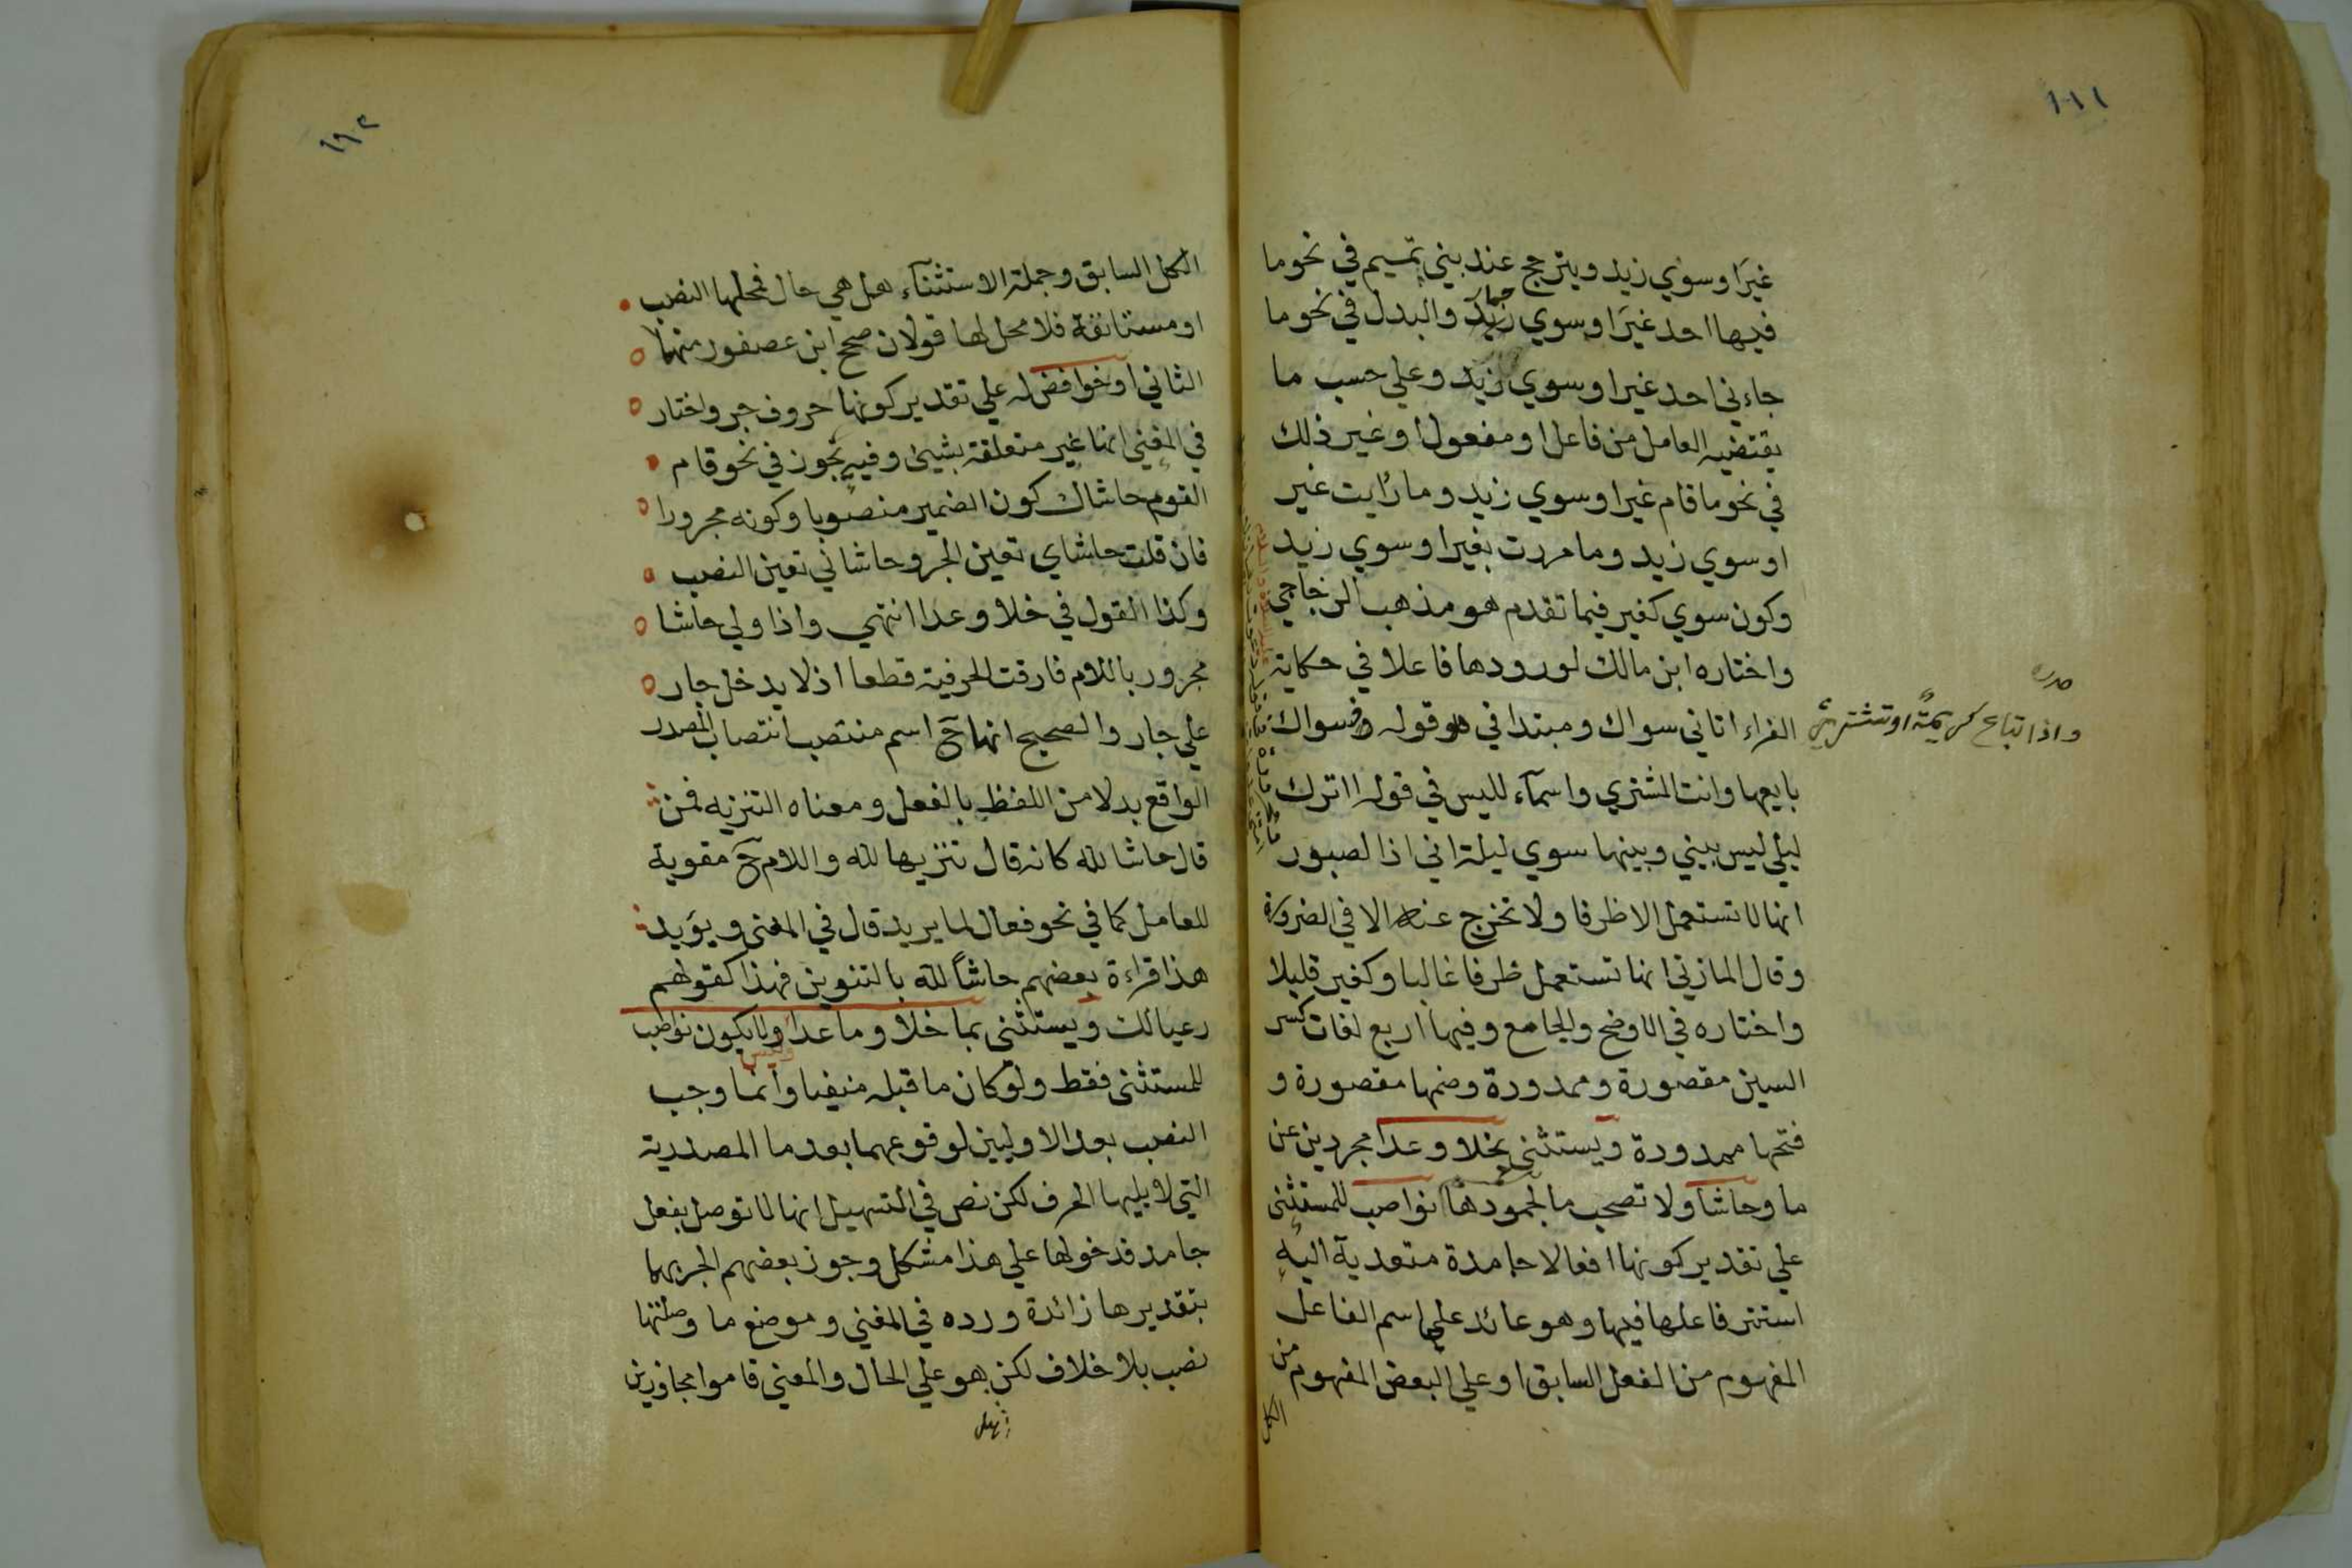 ١٩١
غيرَ او سوي زيد ويترجح عند بني تميم في نحو ما
فيها احد غيرَ او سوي حمار والبدل في نحو ما
جاءني احد غير او سوي زيد وعلي حسب ما
يقتضيه العامل من فاعل او مفعول او غير ذلك
في نحو ما قام غير او سوي زيد وما رايت غير
او سوي زيد وما مررت بغير او سوي زيد
وكون سوي كغير فيما تقدم هو مذهب الزجاجي
واختاره ابن مالك لورودها فاعلا في حكاية
الفراء اتاني سواك ومبتدا في قوله فسواك
صدره
واذا تباع كريمةٌ او تشتري
بايعها وانت المشتري واسمآء لليس في قوله ااترك
ليلي ليس بيني وبينها سوي ليلة اني اذا لصبور
انها لا تستعمل الا ظرفا ولا تخرج عنه الا في الضرورة
وقال المازني انها تستعمل ظرفا غالبا وكغير قليلا
واختاره في الاوضح والجامع وفيها اربع لغات كسر
السين مقصورة وممدودة وضمها مقصورة و
فتحها ممدودة ويستثني بخلا وعدا مجردين عن
ما وحاشا ولا تصحب ما لجمودها نواصب للمستثنى
علي تقدير كونها افعالا جامدة متعدية اليه
استتر فاعلها فيها وهو عائد علي اسم الفاعل
المفهوم من الفعل السابق او علي البعض المفهوم من
الكل
١٩٢
الكل السابق وجملة الاستثنآء هل هي حال فمحلها النصب
او مستانفة فلا محل لها قولان صحح ابن عصفور منهما
الثاني او خوافض له علي تقدير كونها حروف جر واختار
في المغني انها غير متعلقة بشيئ وفيه تجوز في نحو قام
القوم حاشاك كون الضمير منصوبا وكونه مجرورا
فان قلت حاشاي تعين الجر وحاشاني تعين النصب
وكذا القول في خلا وعدا انتهي واذا ولي حاشا
مجرور باللام فارقت الحرفية قطعا اذ لا يدخل جار
علي جار والصحيح انها ح اسم منتصب انتصاب المصدر
الواقع بدلا من اللفظ بالفعل ومعناه التنزيه فمن
قال حاشا لله كانه قال تنزيها لله واللام ح مقوية
للعامل كما في نحو فعال لما يريد قال في المغني ويؤيد
هذا قراءة بعضهم حاشاً لله بالتنوين فهذا كقولهم
رعيا لك ويستثنى بما خلا وما عدا وليس ولا يكون نواصب
للمستثنى فقط ولو كان ما قبله منفيا وانما وجب
النصب بعد الاوليين لوقوعهما بعد ما المصدرية
التي لا يليها الحرف لكن نص في التسهيل انها لا توصل بفعل
جامد فدخولها علي هذا مشكل وجوز بعضهم الجر بهما
بتقديرها زائدة ورده في المغني وموضع ما وصلتها
نصب بلا خلاف لكن هو علي الحال والمعني قاموا مجاوزين